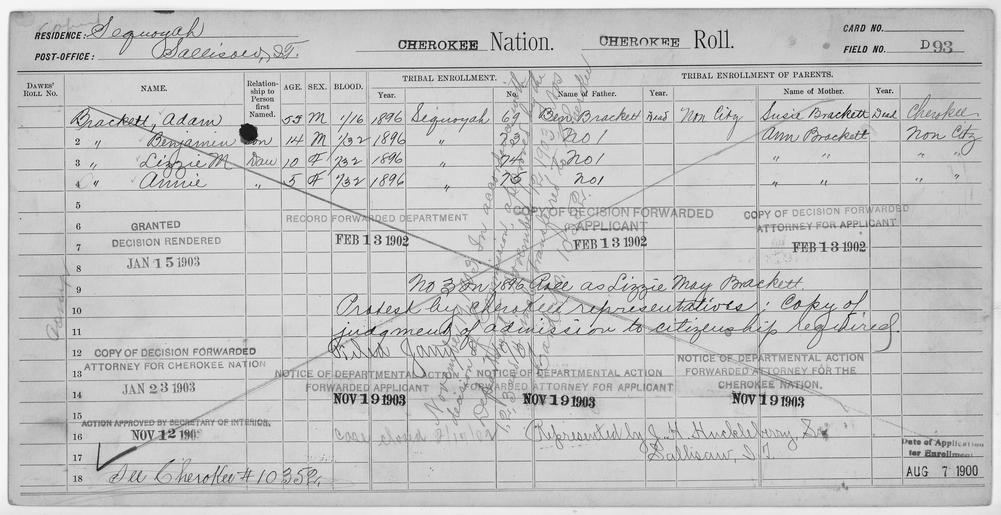 RESIDENCE: Sequoyah
POST-OFFICE: Sallisaw, I.T.
CHEROKEE Nation. CHEROKEE Roll.
CARD NO.
FIELD NO. D 93
DAWES' ROLL NO. NAME. Relationship to Person first Named. AGE. SEX. BLOOD. TRIBAL ENROLLMENT. Year. No. TRIBAL ENROLLMENT OF PARENTS. Name of Father. Year. Name of Mother. Year.
Brackett, Adam 55 M 1/16 1896 Sequoyah 69 Ben Brackett Dead Non Citz Susie Brackett Dead Cherokee
2 " Benjamin Son 14 M 1/32 1896 " 73 No 1 Ann Brackett Non Citz
3 " Lizzie M Dau 10 F 1/32 1896 " 74 No 1 " " " "
4 " Annie " 5 F 1/32 1896 " 75 No 1 " " " "
5
6 GRANTED
7 DECISION RENDERED
8 JAN 15 1903
RECORD FORWARDED DEPARTMENT
FEB 13 1902
COPY OF DECISION FORWARDED
APPLICANT
FEB 13 1902
COPY OF DECISION FORWARDED
ATTORNEY FOR APPLICANT
FEB 13 1902
9 No 3 on 1896 Roll as Lizzie May Brackett.
10 Protest by Cherokee representatives; Copy of
11 judgment of admission to citizenship required.
12 COPY OF DECISION FORWARDED
13 ATTORNEY FOR CHEROKEE NATION
14 JAN 23 1903
15
NOTICE OF DEPARTMENTAL ACTION
FORWARDED APPLICANT
NOV 19 1903
NOTICE OF DEPARTMENTAL ACTION
FORWARDED ATTORNEY FOR APPLICANT
NOV 19 1903
NOTICE OF DEPARTMENTAL ACTION
FORWARDED ATTORNEY FOR THE
CHEROKEE NATION.
NOV 19 1903
ACTION APPROVED BY SECRETARY OF INTERIOR.
16 NOV 12 190
17
Represented by J. H. Huckleberry, Sr
Sallisaw, I.T.
18 See Cherokee # 10352.
Date of Application
for Enrollment
AUG 7 1900